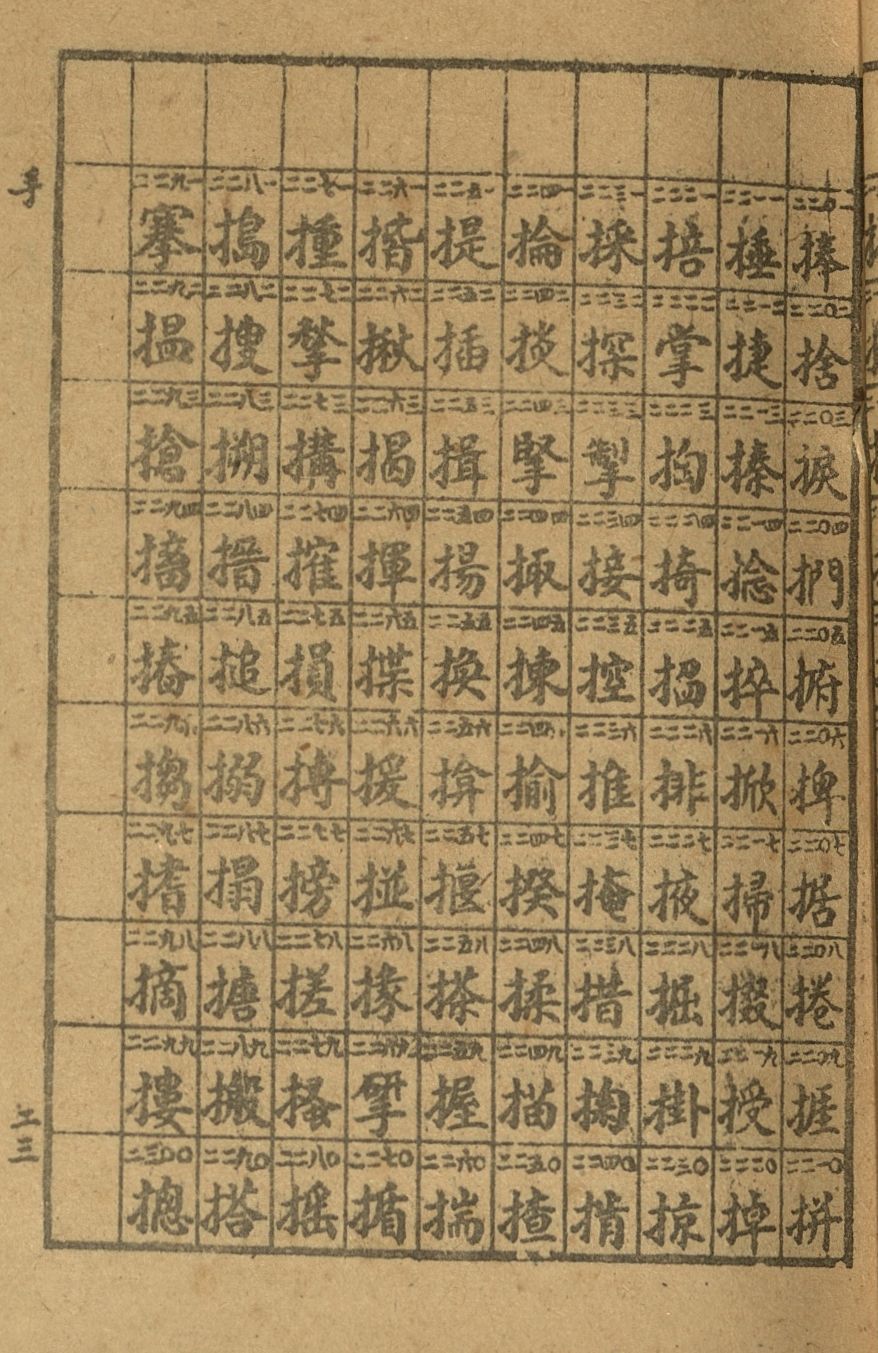 手
二二〇一 捧 二二〇二 捨 二二〇三 捩 二二〇四 捫 二二〇五 捬 二二〇六 捭 二二〇七 据 二二〇八 捲 二二〇九 捱 二二一〇 拼
二二一一 捶 二二一二 捷 二二一三 二二一四 捻 二二一五 捽 二二一六 掀 二二一七 掃 二二一八 掇 二二一九 授 二二二〇 掉
二二二一 掊 二二二二 掌 二二二三 掏 二二二四 掎 二二二五 掐 二二二六 排 二二二七 掖 二二二八 掘 二二二九 掛 二二三〇 掠
二二三一 採 二二三二 探 二二三三 掣 二二三四 接 二二三五 控 二二三六 推 二二三七 掩 二二三八 措 二二三九 掬 二二四〇 掯
二二四一 掄 二二四二 掞 二二四三 掔 二二四四 掫 二二四五 揀 二二四六 揄 二二四七 揆 二二四八 揉 二二四九 描 二二五〇 揸
二二五一 提 二二五二 插 二二五三 揖 二二五四 揚 二二五五 換 二二五六 揜 二二五七 揠 二二五八 搽 二二五九 握 二二六〇 揣
二二六一 揩 二二六二 揪 二二六三 揭 二二六四 揮 二二六五 揲 二二六六 援 二二六七 掽 二二六八 掾 二二六九 揅 二二七〇 揗
二二七一 揰 二二七二 揫 二二七三 搆 二二七四 搉 二二七五 損 二二七六 搏 二二七七 搒 二二七八 搓 二二七九 搔 二二八〇 搖
二二八一 搗 二二八二 搜 二二八三 搠 二二八四 搢 二二八五 搥 二二八六 搦 二二八七 搨 二二八八 搪 二二八九 搬 二二九〇 搭
二二九一 搴 二二九二 搵 二二九三 搶 二二九四 二二九五 摏 二二九六 搊 二二九七 搘 二二九八 摘 二二九九 摟 二三〇〇 摠